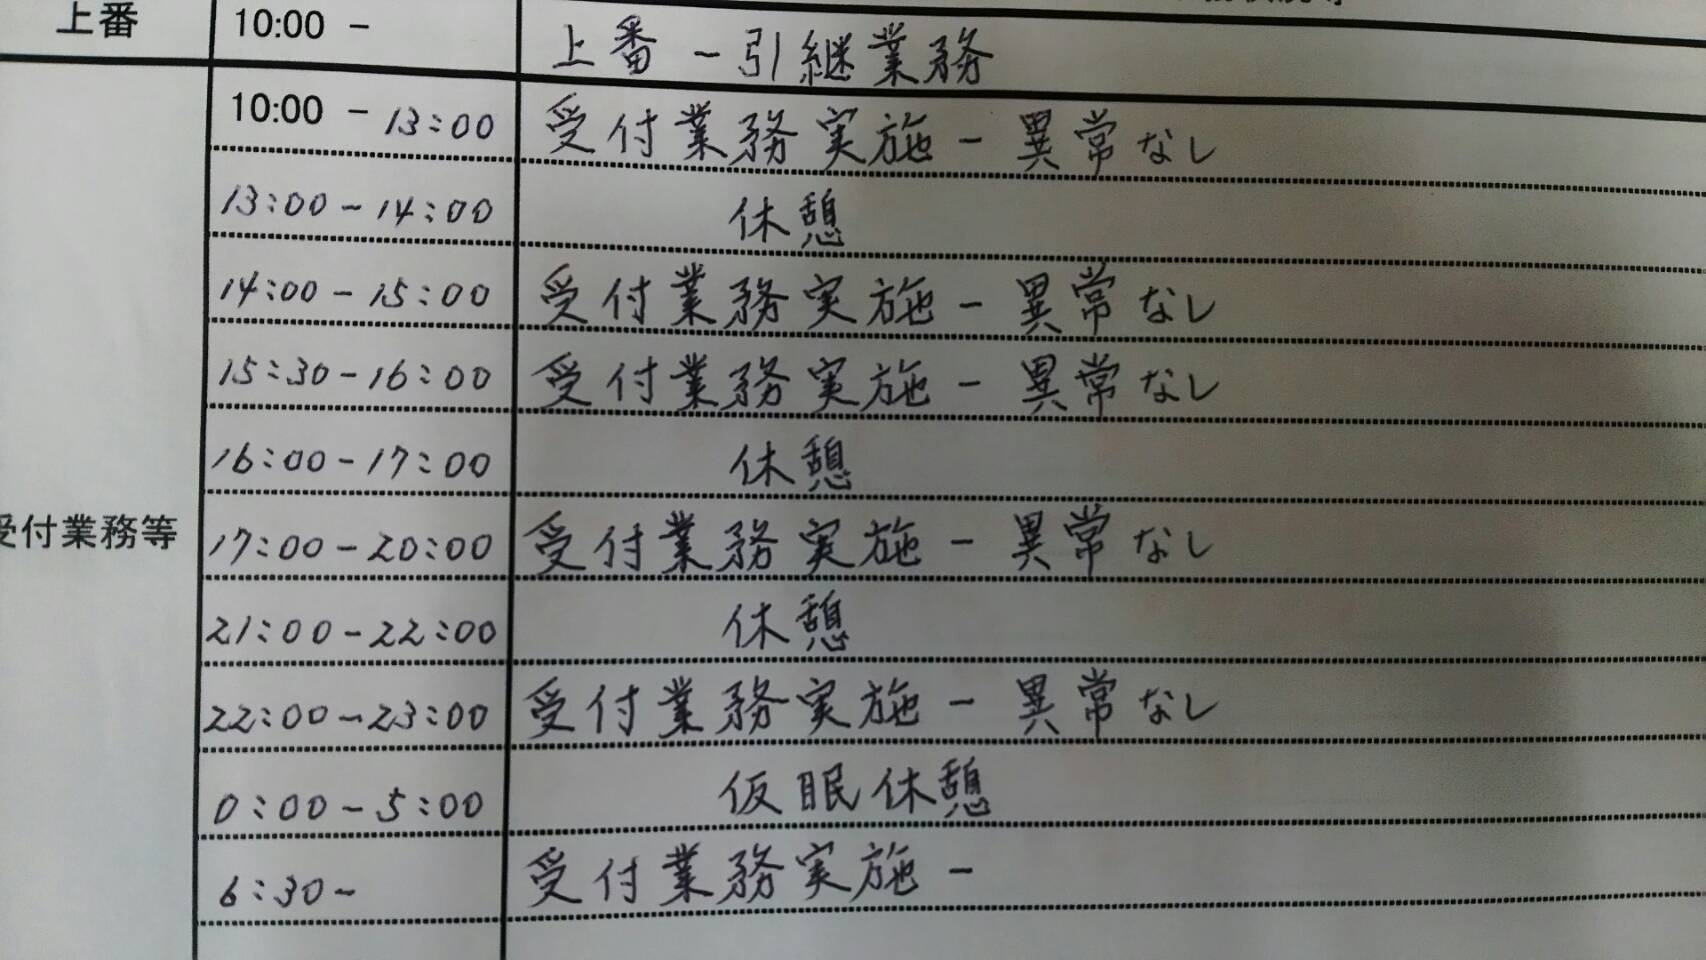 上番 10:00 - 上番 - 引継業務
10:00 - 13:00 受付業務実施 - 異常なし
13:00 - 14:00 休憩
14:00 - 15:00 受付業務実施 - 異常なし
15:30 - 16:00 受付業務実施 - 異常なし
16:00 - 17:00 休憩
受付業務等 17:00 - 20:00 受付業務実施 - 異常なし
21:00 - 22:00 休憩
22:00 - 23:00 受付業務実施 - 異常なし
0:00 - 5:00 仮眠休憩
6:30 - 受付業務実施 -